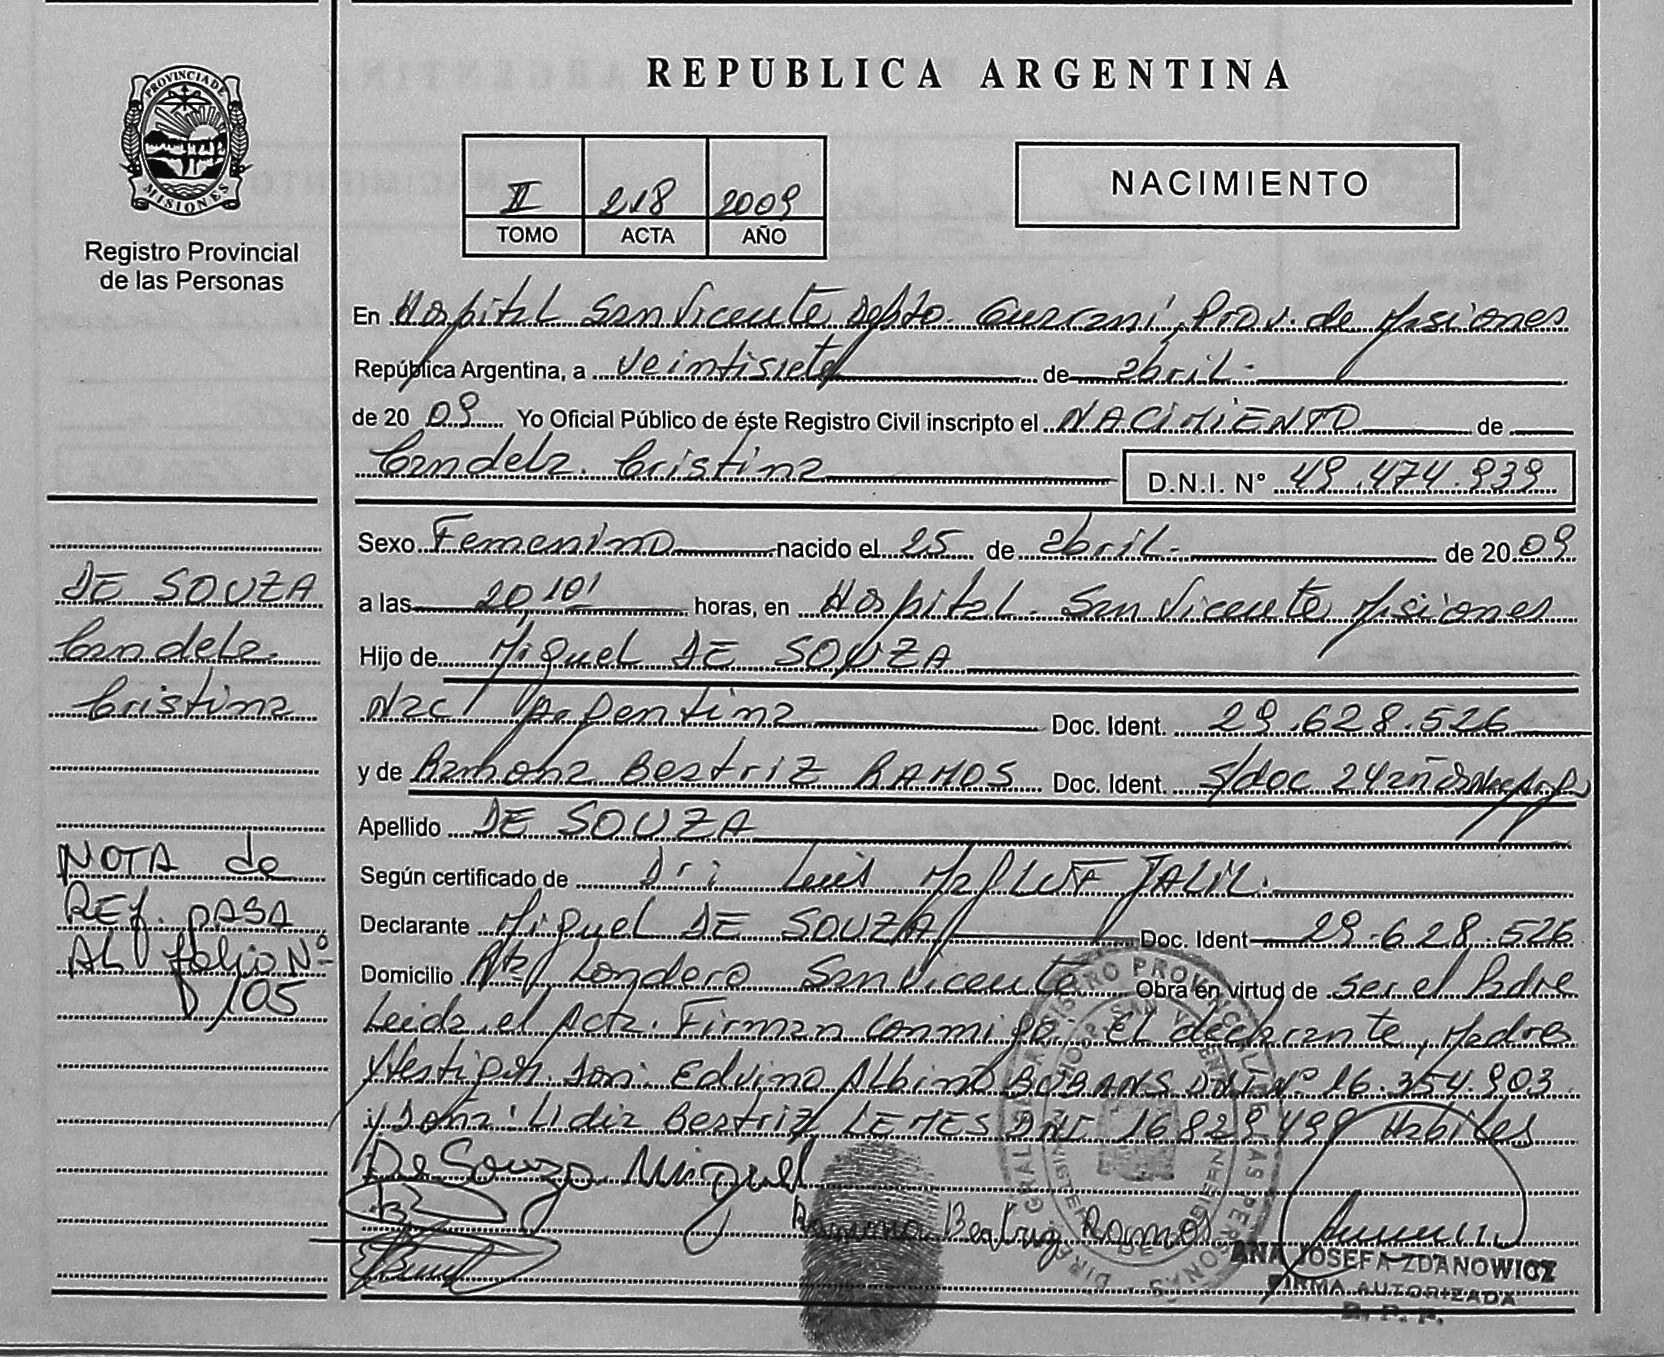 REPUBLICA ARGENTINA
PROVINCIA DE MISIONES
Registro Provincial
de las Personas
II 218 2009
TOMO ACTA AÑO
NACIMIENTO
En Hospital San Vicente Dpto. Guaraní, Prov. de Misiones
República Argentina, a veintisiete de abril.
de 2009 Yo Oficial Público de éste Registro Civil inscripto el NACIMIENTO de
Candela Cristina D.N.I. N° 49.474.939
Sexo Femenino nacido el 25 de abril. de 2009
a las 20,10' horas, en Hospital San Vicente Misiones
Hijo de Miguel DE SOUZA
Nac/ Argentina Doc. Ident. 29.628.526
y de Ramona Beatriz RAMOS Doc. Ident. s/doc 24 años
Apellido DE SOUZA
Según certificado de Dr: Luis JALIL.
Declarante Miguel DE SOUZA Doc. Ident 29.628.526
Domicilio Londero San Vicente Obra en virtud de ser el Padre
Leida el Acta. Firman conmigo: El declarante, Madres
y testigos. Don: Edvino Albino DNI N° 16.354.903
y Doña: Lidia Beatriz LEMES DNI 16829499 Habiles
De Souza Miguel
Ramona Beatriz Ramos
ANA JOSEFA ZDANOWICZ
FIRMA AUTORIZADA
R. P. P.
DE SOUZA
Candela
Cristina
NOTA de
REf. PASA
AL folio Nº
D/105